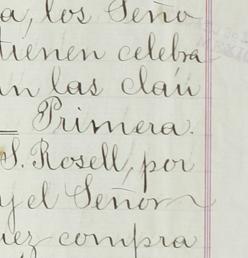 a, los Seño
tienen celebra
n las cláu
Primera.
S. Rosell, por
y el Señor
uez compra